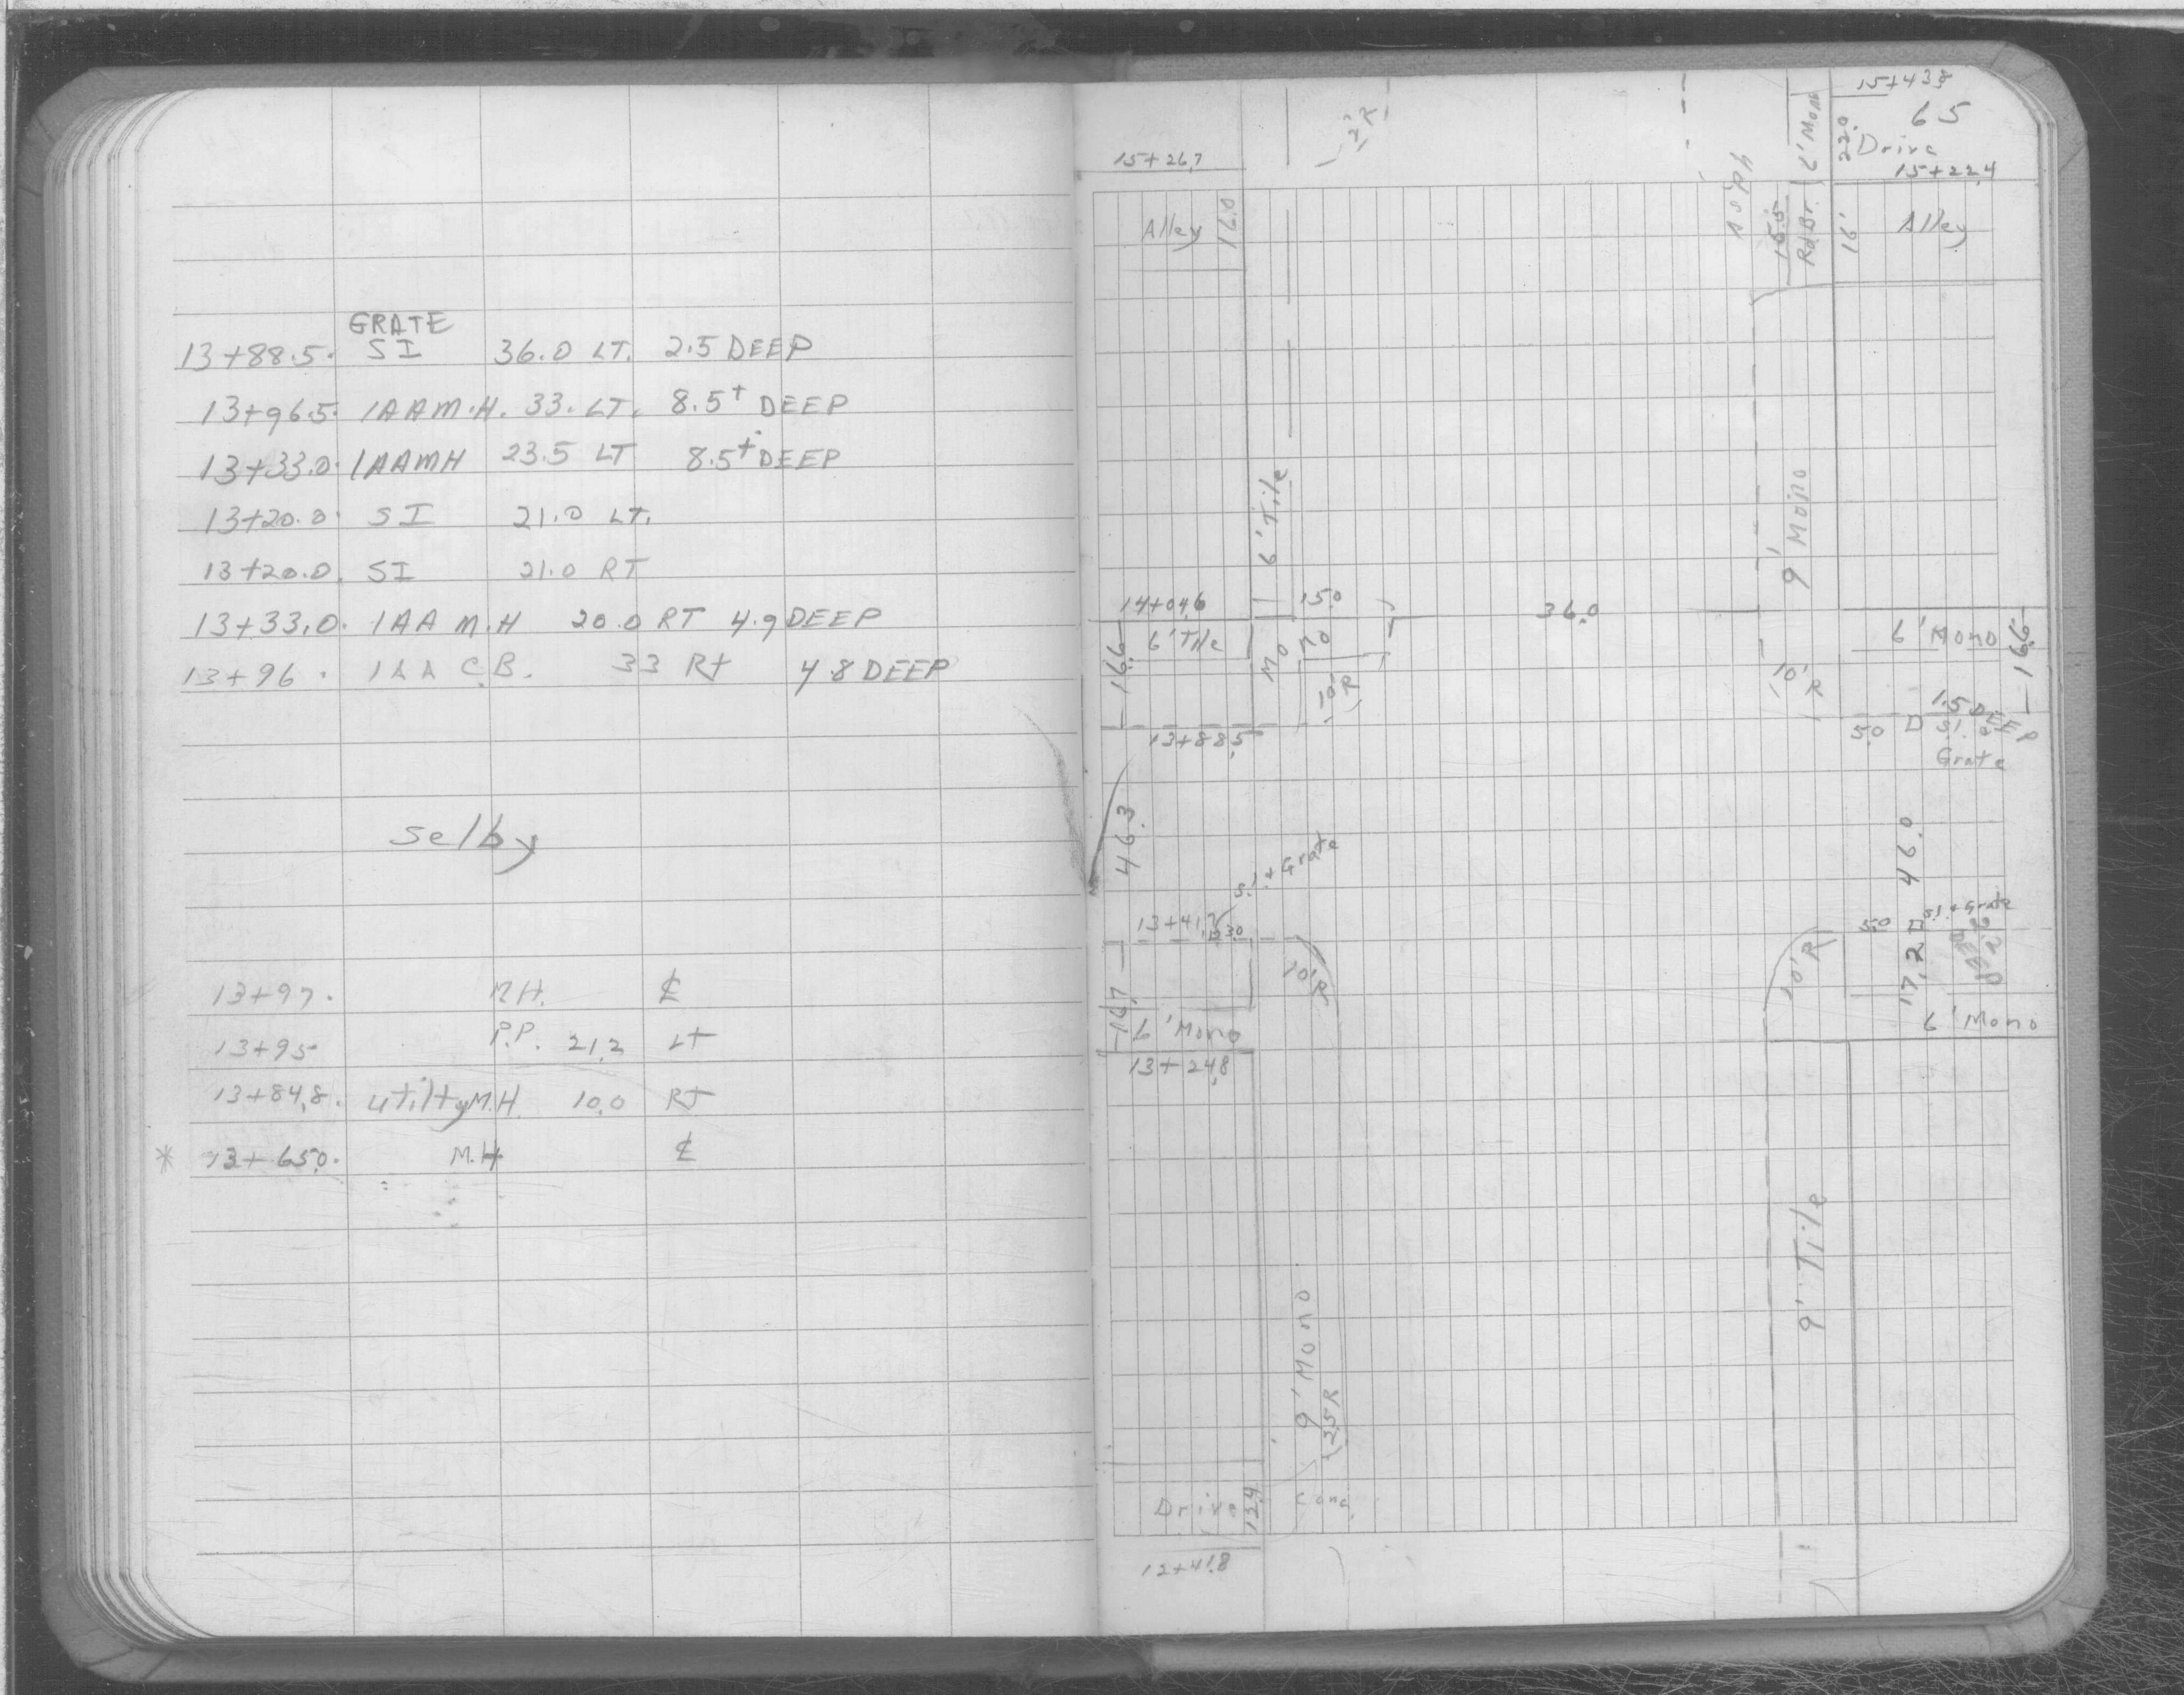 GRATE
13+88.5. SI 36.0 LT. 2.5 DEEP
13+96.5. 1AA M.H. 33. LT. 8.5+ DEEP
13+33.0. 1AAMH 23.5 LT 8.5+ DEEP
13+20.0. SI 21.0 LT.
13+20.0. SI 21.0 RT
13+33.0. 1AA M.H 20.0 RT 4.9 DEEP
13+96. 1AA C.B. 33 Rt 4.8 DEEP
Selby
13+97. M.H. ℄
13+95 P.P. 21.2 Lt
13+84.8. utilty M.H. 10.0 Rt
* 13+65.0. M.H ℄
15+43.8
65
Drive
22.0
15+22.4
6' Mono
Asph
15.5
Rd Br.
16'
Alley
15+26.7
Alley
16.0
2'R
6' Tile
9' Mono
14+04.6
15.0
36.0
6' Tile
16.6
Mono
10'R
13+88.5
6' Mono
16.6
10'R
1.5 DEEP
5.0 S.I. &
Grate
46.3
S.I. & Grate
13+41.7
3.0
16.7
10'R
6' Mono
13+24.8
46.0
5.0 S.I. & Grate
17.2
2.2 DEEP
10'R
6' Mono
9' Tile
9' Mono
25R
Drive
13.4
Conc.
12+41.8